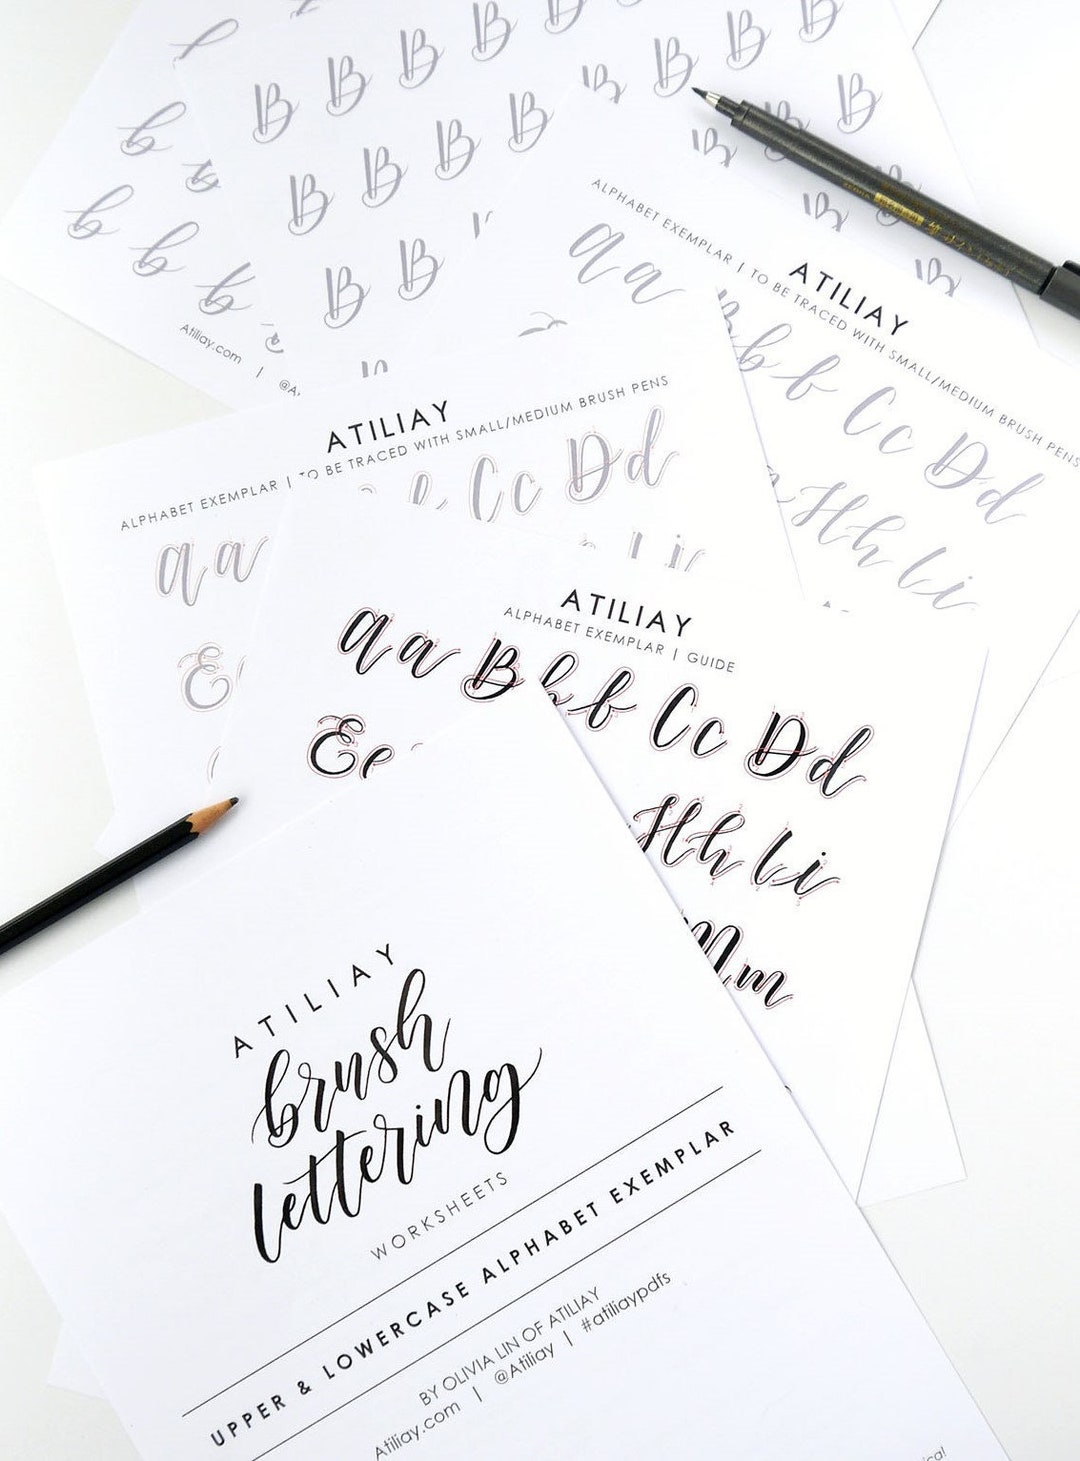 B B B B
B B B B B B B
b B B B B B B
b B B
b b B B
Atiliay.com | @A
ATILIAY
ALPHABET EXEMPLAR | TO BE TRACED WITH SMALL/MEDIUM BRUSH PENS
a a b b Cc Dd
Hh Ii
ATILIAY
ALPHABET EXEMPLAR | TO BE TRACED WITH SMALL/MEDIUM BRUSH PENS
a a Cc Dd
E
ATILIAY
ALPHABET EXEMPLAR | GUIDE
a a B b b Cc Dd
E e Hh Ii
Mm
ATILIAY
brush
lettering
WORKSHEETS
UPPER & LOWERCASE ALPHABET EXEMPLAR
BY OLIVIA LIN OF ATILIAY
Atiliay.com | @Atiliay | #atiliaypdfs